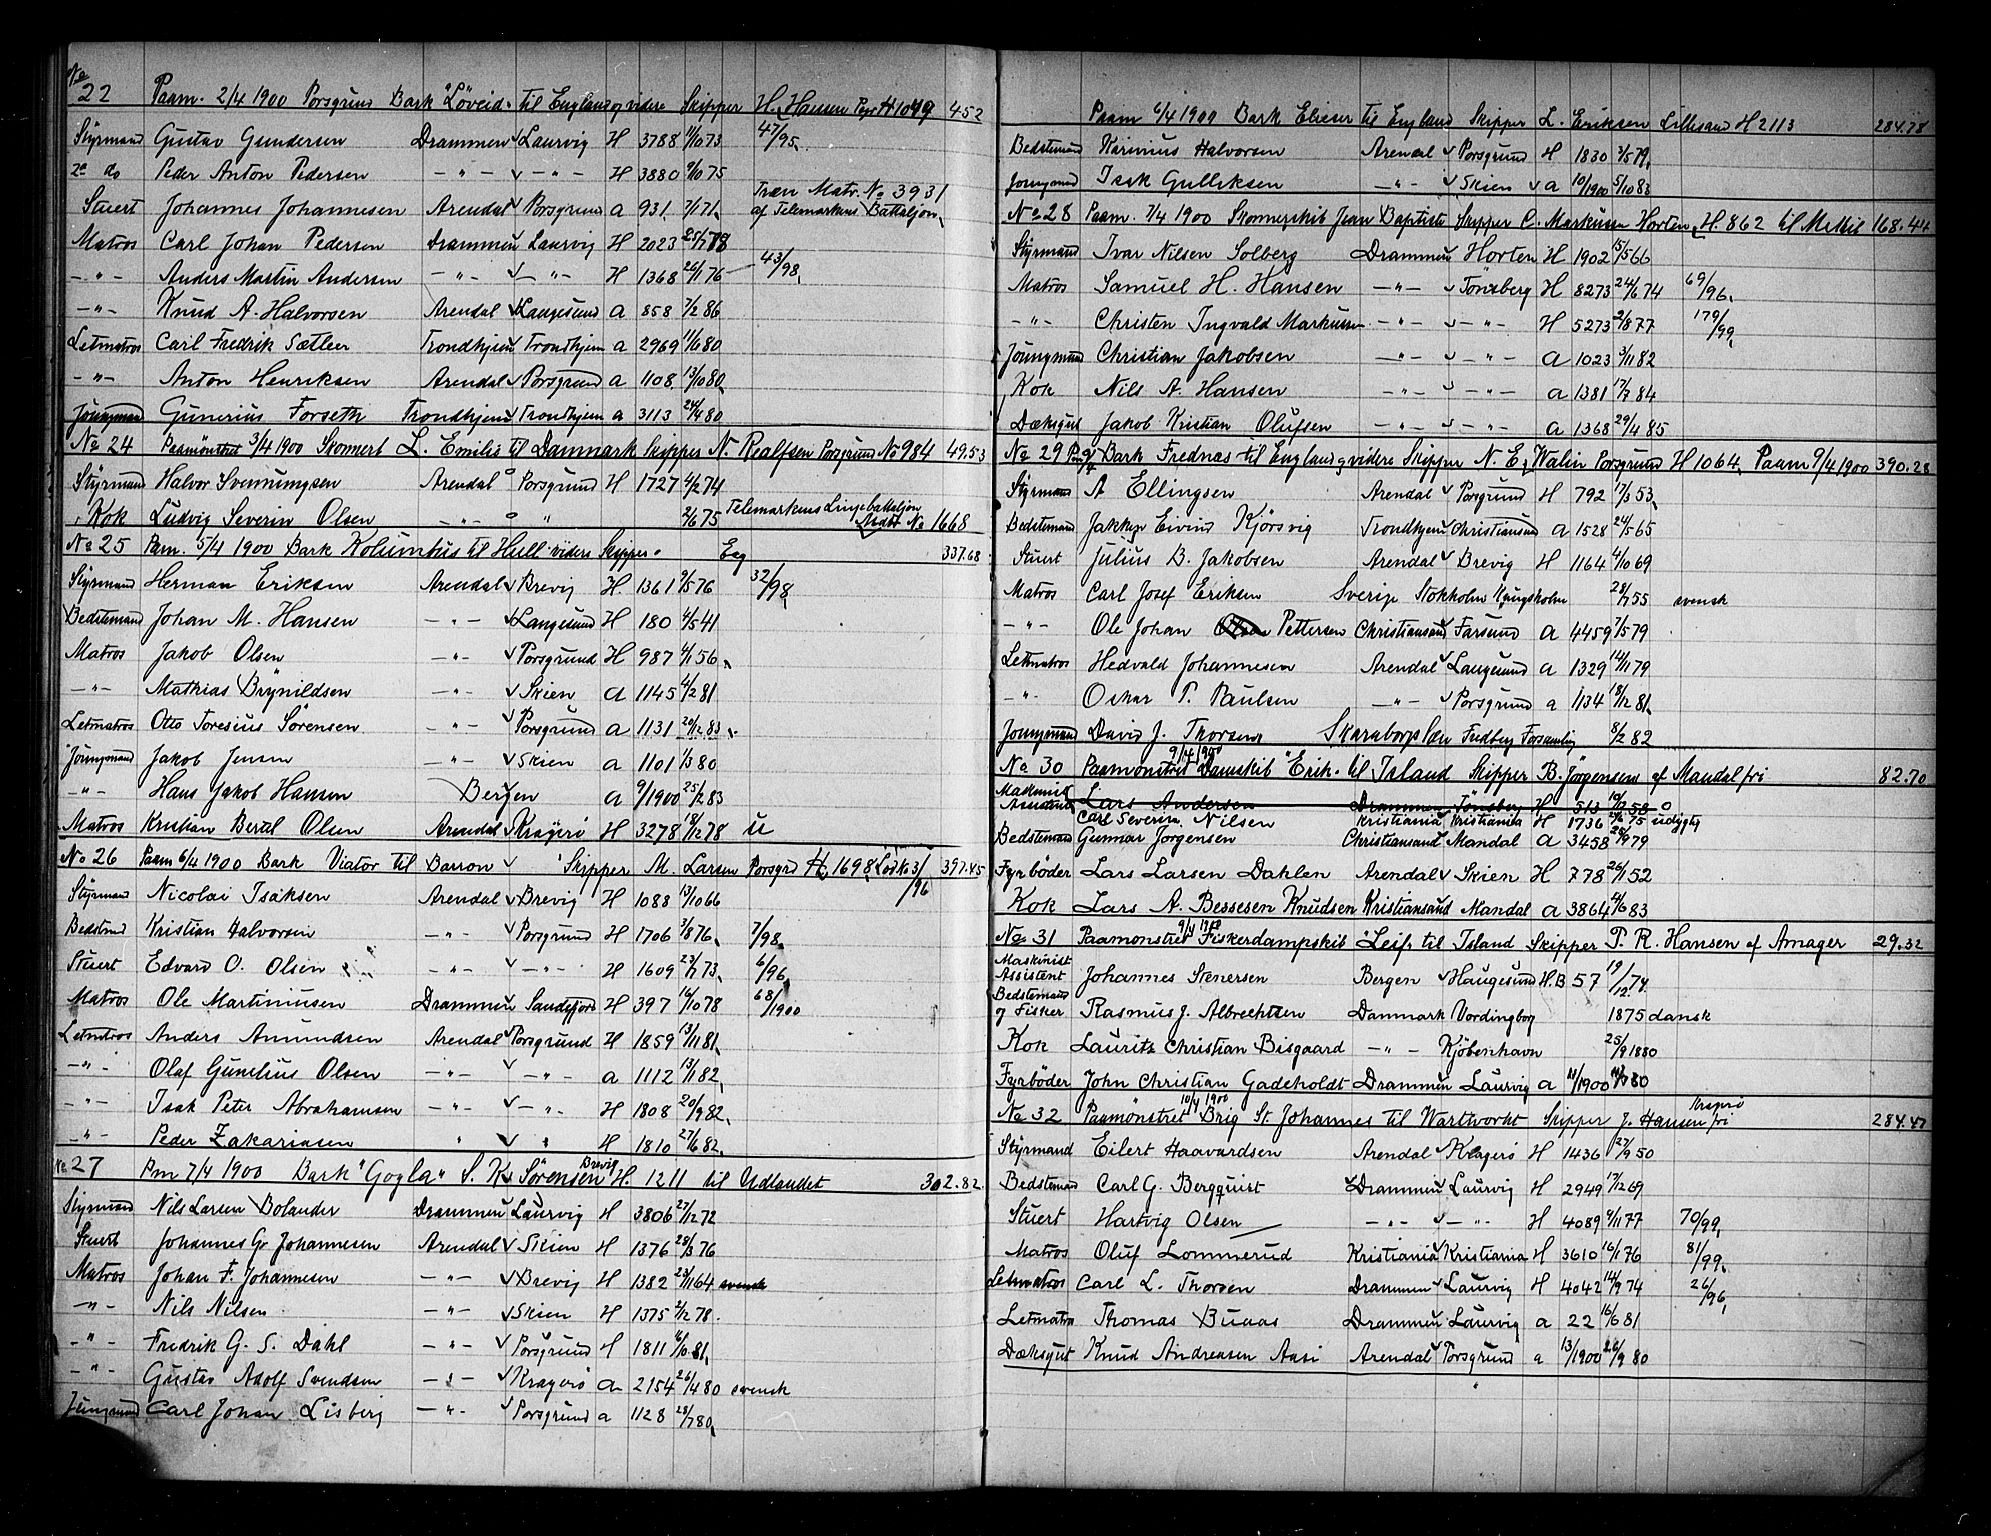 No
22 Paam. 2/4 1900 Porsgrund Bark "Löveid" til England og videre Skipper H. Hansen Pgr H 1049 452
Styrmand Gustav Gundersen Drammen v Laurvig H 3788 11/10 73 47/95
2e do Peder Anton Pedersen – " – v – " – H 3880 9/10 75
Stuert Johannes Johannesen Arendal v Porsgrund a 931 7/1 71 Træn Matr. No 3931 af Telemarkens Battaljon
Matros Carl Johan Pedersen Drammen Laurvig H 2023 25/7 78
– " – Anders Martin Andersen – " – v – " – H 1368 26/1 76 43/98
– " – Knud A. Halvorsen Arendal v Langesund a 858 7/2 86
Letmatros Carl Fredrik Sætler Trondhjem Trondhjem a 2969 11/6 80
– " – Anton Henriksen Arendal v Porsgrund a 1108 13/10 80
Joungmand Gunerius Forseth Trondhjem v Trondhjem a 3113 24/4 80
No 24 Paamönstret 3/4 1900 Skonnert L. Emilie til Danmark Skipper N. Realfsen Porsgrund No 984 49.53
Styrmand Halvor Svenningsen Arendal o Porsgrund H 1727 4/2 74
Kok Ludvig Severin Olsen – " – o " 2/6 75 Telemarkens Linjebattaljon Mdbr No 1668
No 25 Paam. 5/4 1900 Bark Kolumbus til Hull videre Skipper Eeg 337.68
Styrmand Herman Eriksen Arendal v Brevig H. 1361 9/5 76 32/98
Bedstemand Johan M. Hansen – " – v Langesund H 180 4/5 41
Matros Jakob Olsen – " – v Porsgrund H 987 4/1 56
– " – Mathias Brynildsen – " – v Skien a 1145 4/2 81
Letmatros Otto Toresius Sörensen – " – v Porsgrund a 1131 20/12 83
Joungmand Jakob Jensen – " – v Skien a 1101 1/3 80
– " – Hans Jakob Hansen Bergen a 9/1900 25/12 83
Matros Kristian Bertel Olsen Arendal v Kragerö H 3278 18/12 78 U
No 26 Paam 6/4 1900 Bark Viator til Barron v Skipper M. Larsen Porsgrd H. 1698 397.45
Styrmand Nicolai Isaksen Arendal v Brevig H 1088 13/10 66
Bedstmd Kristian Halvorsen – " – v Porsgrund H 1706 3/8 76 7/98
Stuert Edvard O. Olsen – " – v – " – H 1609 23/7 73 6/96
Matros Ole Martiniusen Drammen Sandefjord H 397 16/10 78 68/1900
Letmatros Anders Amundsen Arendal v Porsgrund H 1859 13/11 81
– " – Olaf Gunelius Olsen – " – v – " – a 1112 13/1 82
– " – Isak Peter Abrahamsen – " – v – " – H 1808 20/9 82
– " – Peder Zakariasen " v " H 1810 27/6 82
No 27 Pm 7/4 1900 Bark "Gogla" S. K. Sörensen Brevig H. 1211 til Udlandet 302.82
Styrmand Nils Larsen Bolander Drammen Laurvig H 3806 27/12 72
Stuert Johannes Gr Johannesen Arendal v Skien H 1376 28/3 76
Matros Johan F. Johannesen – " – v Brevig H 1382 23/11 64 svensk
– " – Nils Nilsen – " – v Skien H 1375 2/12 78
– " – Fredrik G. S. Dahl – " – v Porsgrund H 1811 16/6 81
– " – Gustav Adolf Svendsen – " – v Kragerö a 2154 26/4 80 svensk
Jungmand Carl Johan Lisberg – " – v Porsgrund a 1128 28/7 80
Paam 6/4 1900 Bark Elieser til England Skipper L. Eriksen Lillesand H 2113 284.78
Bedstemand Karinius Halvorsen Arendal v Porsgrund H 1830 3/5 79
Joungmand Isak Gulliksen – " – v Skien v a 10/1900 5/10 83
No 28 Paam. 7/4 1900 Skonnerskib Jean Baptiste Skipper C. Markussen Horten H. 862 til Methil 168.44
Styrmand Ivar Nilsen Solberg Drammen Horten H 1902 15/5 66
Matros Samuel H. Hansen – " – v Tönsberg H 8273 24/6 74 69/96
– " – Christen Ingvald Markussen – " – v – " – H 5273 2/8 77 179/99
Joungmand Christian Jakobsen – " – v – " – a 1023 3/11 82
Kok Nils A. Hansen " v – " – a 1381 17/7 84
Dæksgut Jakob Kristian Olufsen – " – v – " – a 1368 29/4 85
No 29 Pm 9/4 Bark Frednæs til England og videre Skipper N. E. Walin Porsgrund H 1064 Paam 9/4 1900 390.28
Styrmand A Ellingsen Arendal v Porsgrund H 792 17/3 53
Bedstemand Jakken Eivind Kjörsvig Trondhjem Christiansund a 1528 24/5 65
Stuert Julius B. Jakobsen Arendal v Brevig H 1164 4/10 69
Matros Carl Josef Eriksen Sverige Stokholm Kungsholm 28/7 55 svensk
– " – Ole Johan Pettersen Christiansand Farsund a 4459 7/5 79
Letmatros Hedvald Johannesen Arendal v Langesund a 1329 14/11 79
– " – Oskar T. Paulsen – " – v Porsgrund a 1134 18/12 81
Joungmand David J. Thorsen Skaraborgslen Fredberg Forsamling 8/2 82
No 30 Paamönstret 9/4 1900 Damskib "Erik" til Island Skipper B. Jörgensen af Mandal fri 82.70
Maskinist Assistent Lars Andersen Drammen Tönsberg H 513 10/12 58 o
Carl Severin Nilsen Kristiania Kristiania H 1736 24/2 75 udygtg
Bedstemand Gunnar Jorgensen Christiansand Mandal a 3458 25/9 79
Fyrböder Lars Larsen Dahlen Arendal v Skien H 778 26/1 52
Kok Lars A. Bessesen Knudsen Kristiansand Mandal a 3864 4/6 83
No 31 Paamönstret 9/4 1900 Fiskerdampskib "Leif" til Island Skipper P. R. Hansen af Amager 29.32
Maskinist Assistent Johannes Stenersen Bergen v Haugesund H.B 57 19/12 74
Bedstemand og Fisker Rasmus J. Albrechtsen Danmark Vordingborg 1875 dansk
Kok Laurits Christian Bisgaard – " – Kjöbenhavn 25/9 1880
Fyrböder John Christian Gadeholdt Drammen Laurvig a 11/1900 14/7 80
No 32 Paamönstret 10/4 1900 Brig St. Johannes til Wartworht Skipper J. Hansen fri 284.47
Styrmand Eilert Haavardsen Arendal v Kragerö H 1436 27/9 50
Bedstemand Carl G. Bergquist Drammen Laurvig H 2949 17/12 69
Stuert Hartvig Olsen – " – v – " – H 4089 9/11 77 70/99
Matros Oluf Lommerud Kristiania Kristiania H 3610 16/1 76 81/99
Letmatros Carl L. Thorsen Drammen v Laurvig H 4042 14/9 74 26/96
Letmatro Thomas Buaas Drammen Laurvig a 22 16/6 81
Dæksgut Knud Andreasen Aasi Arendal v Porsgrund a 13/1900 26/9 80